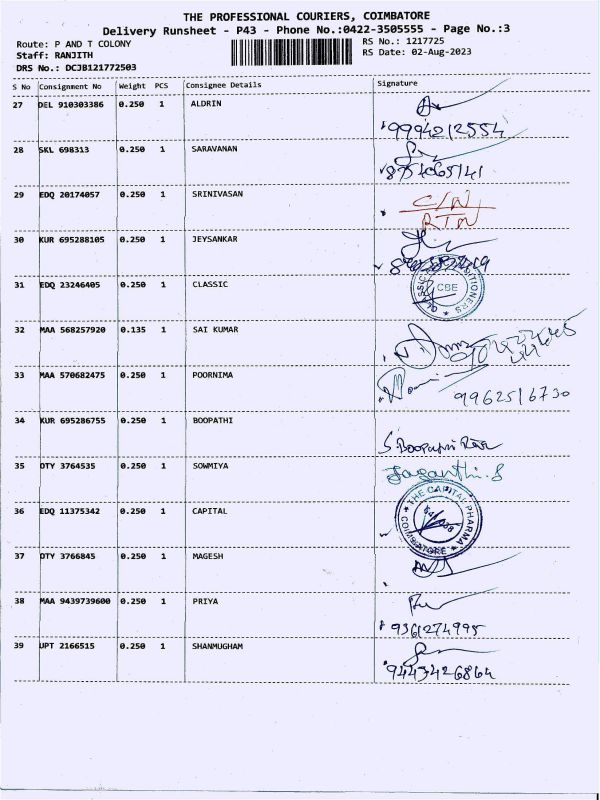 THE PROFESSIONAL COURIERS, COIMBATORE
Delivery Runsheet - P43 - Phone No.:0422-3505555 - Page No.:3
Route: P AND T COLONY RS No.: 1217725
Staff: RANJITH RS Date: 02-Aug-2023
DRS No.: DCJB121772503
S No Consignment No Weight PCS Consignee Details Signature
27 DEL 910303386 0.250 1 ALDRIN
9994212554
28 SKL 698313 0.250 1 SARAVANAN
29 EDQ 20174057 0.250 1 SRINIVASAN C/N
RTN
30 KUR 695288105 0.250 1 JEYSANKAR
31 EDQ 23246405 0.250 1 CLASSIC CLASSIC CBE
32 MAA 568257920 0.135 1 SAI KUMAR
33 MAA 570682475 0.250 1 POORNIMA
9962516730
34 KUR 695286755 0.250 1 BOOPATHI
S. Boopathi Raja
35 DTY 3764535 0.250 1 SOWMIYA Jaganthi.S
36 EDQ 11375342 0.250 1 CAPITAL THE CAPITAL PHARMA COIMBATORE
37 DTY 3766845 0.250 1 MAGESH
38 MAA 9439739600 0.250 1 PRIYA
9361274995
39 UPT 2166515 0.250 1 SHANMUGHAM
9443426864